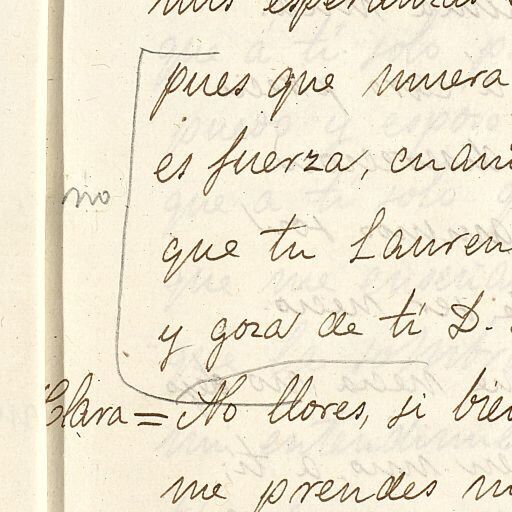 mis esperanzas
pues que muera
es fuerza, cuan
no
que tu Lauren
y goza de ti D.
Clara = No llores, si bien
me prendes